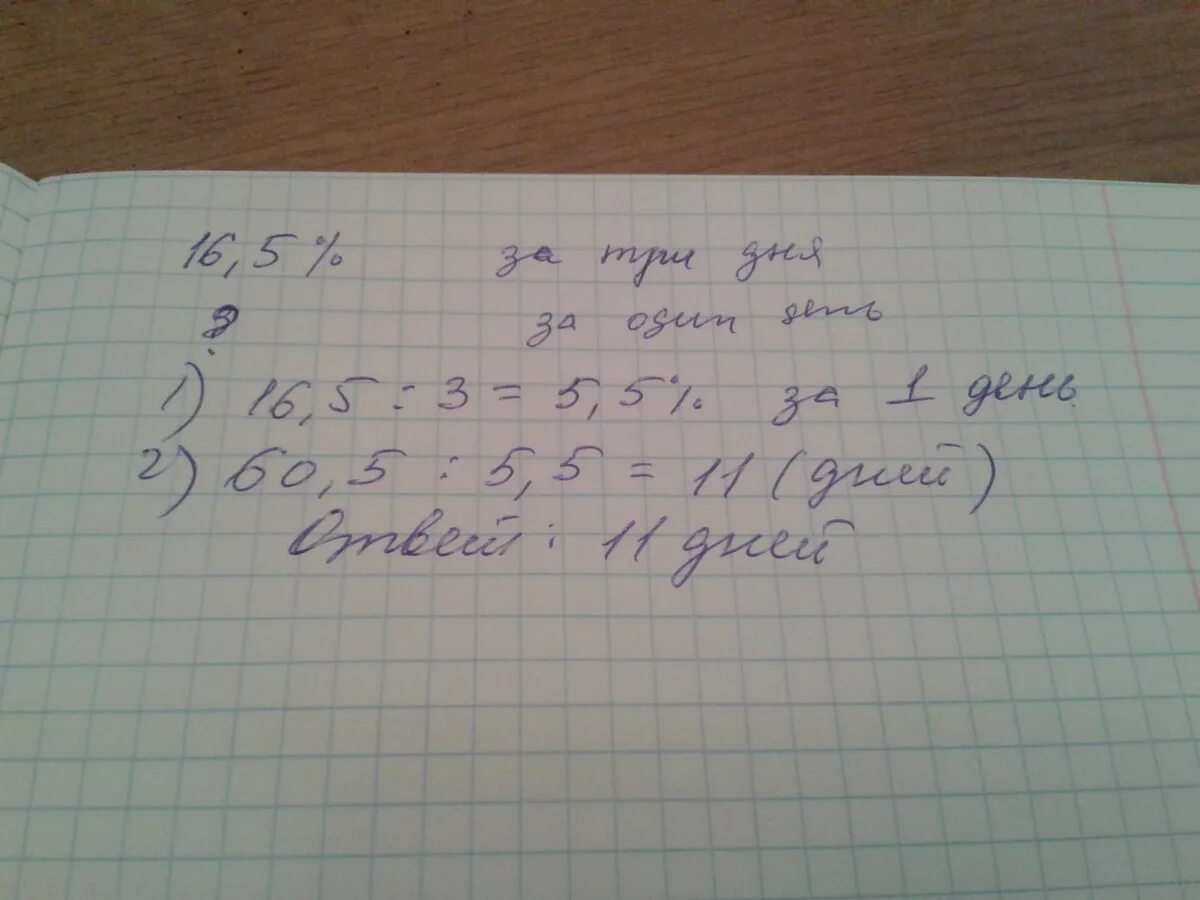 16,5% за три дня
? за один день
1) 16,5 : 3 = 5,5% за 1 день
2) 60,5 : 5,5 = 11 (дней)
Ответ: 11 дней